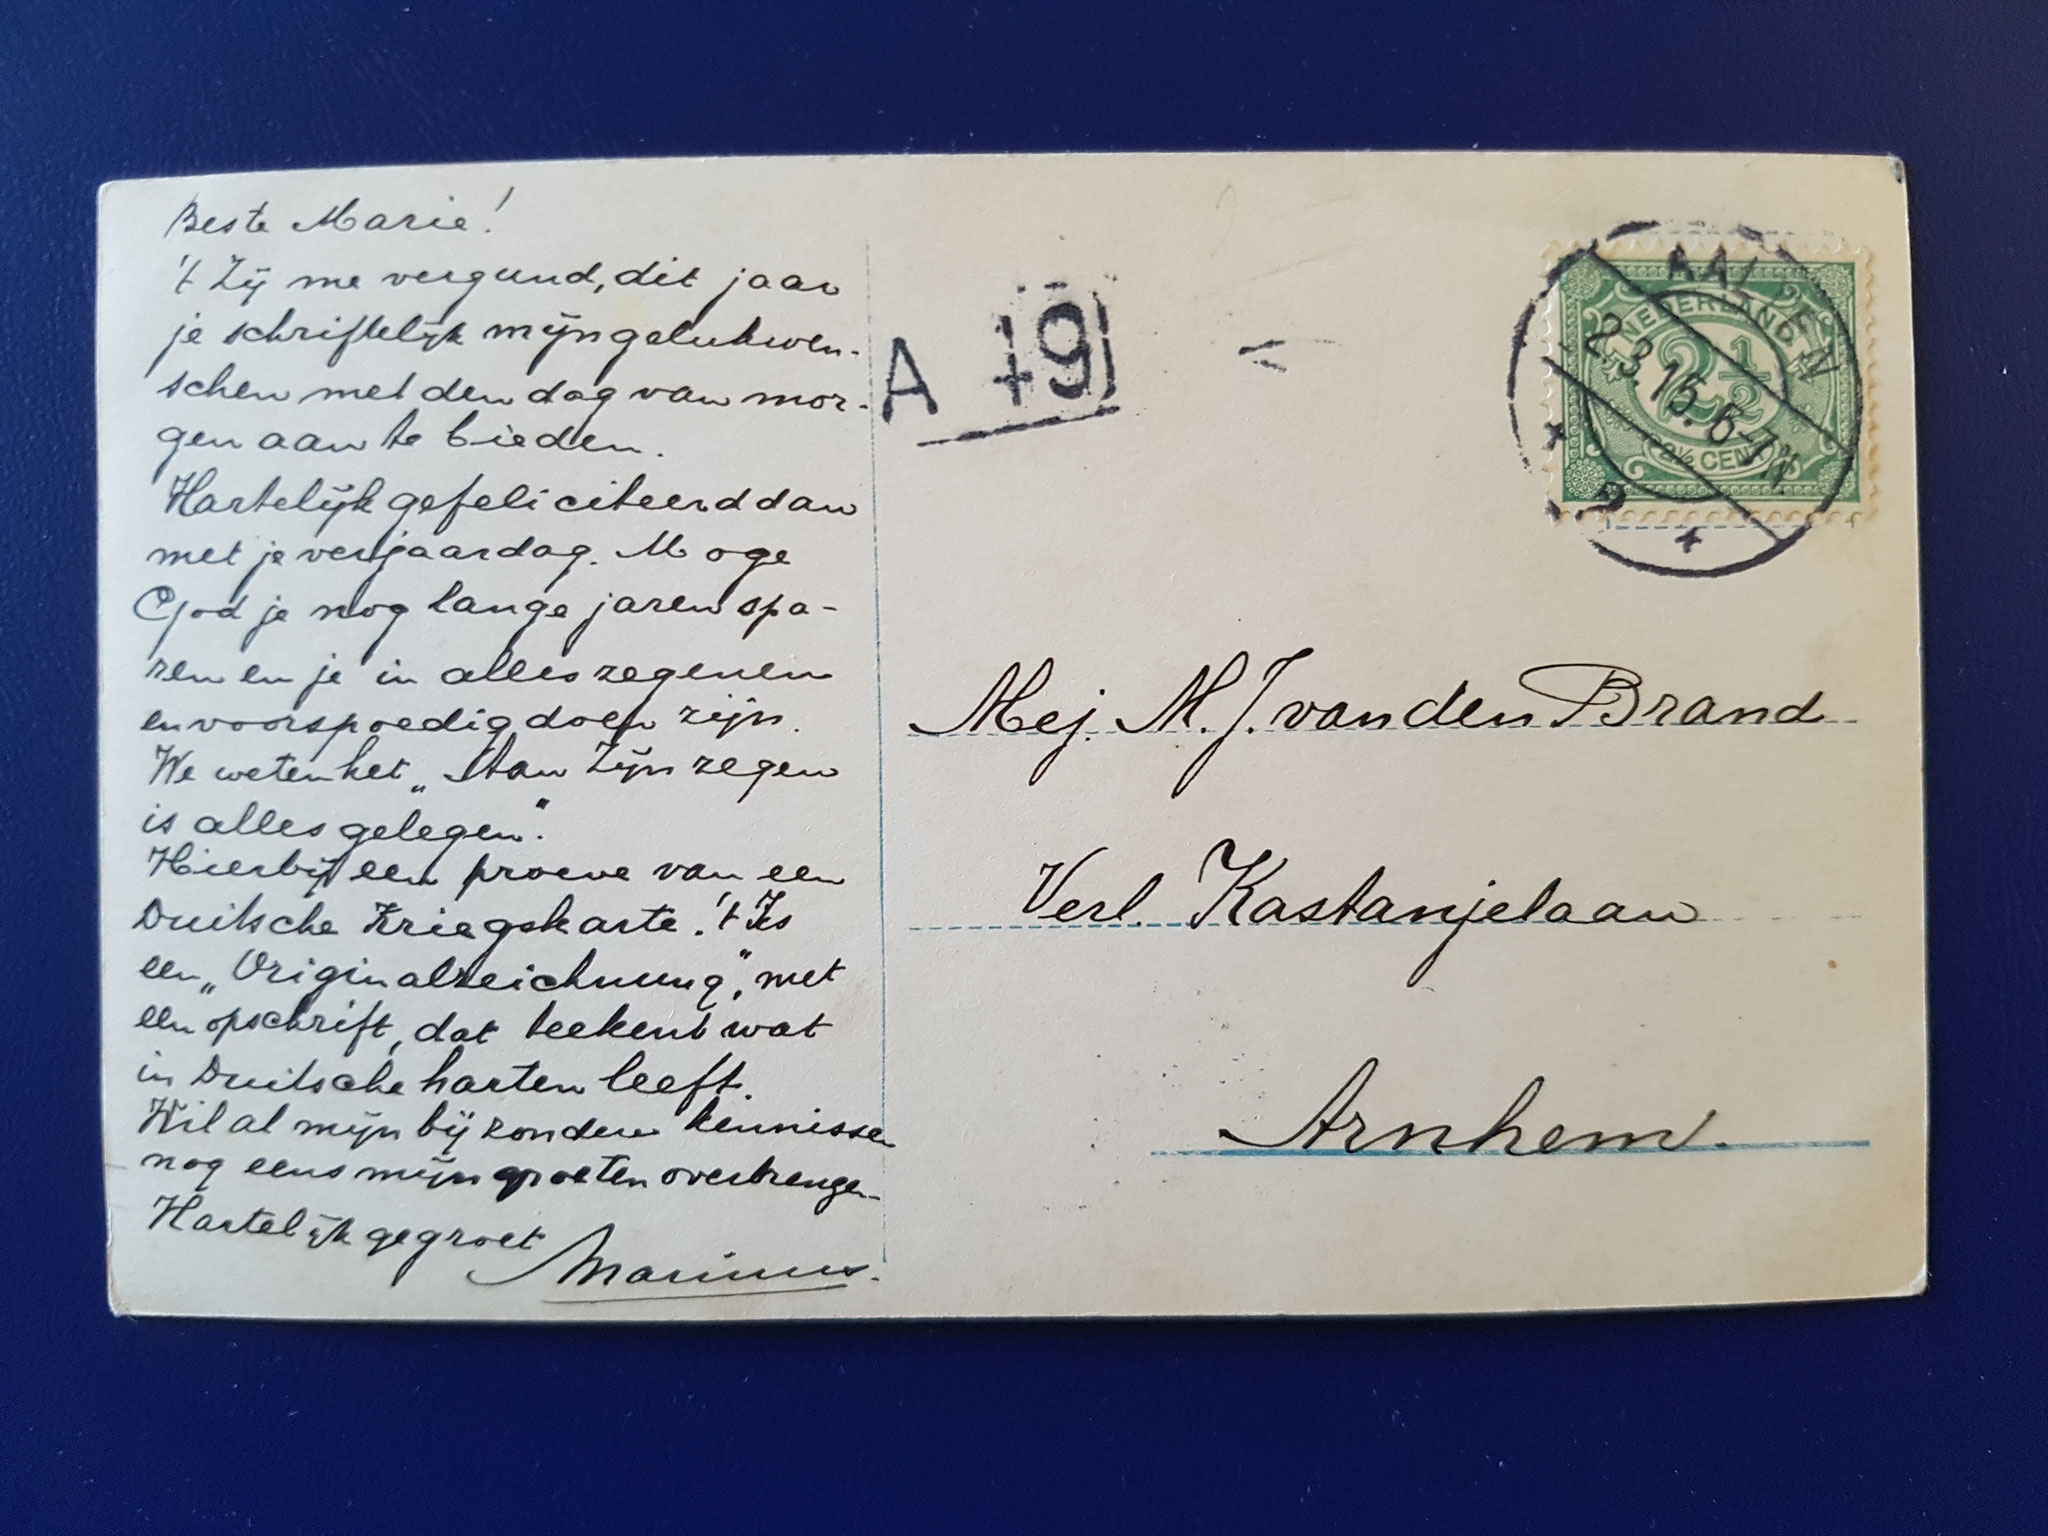 Beste Marie!
't Zij me vergund, dit jaar
je schriftelijk mijn gelukwen-
schen met den dag van mor-
gen aan te bieden.
Hartelijk gefeliciteerd dan
met je verjaardag. Moge
God je nog lange jaren spa-
ren en je in alles zegenen
en voorspoedig doen zijn.
We weten het „Aan Zijn zegen
is alles gelegen".
Hierbij een proeve van een
Duitsche Kriegskarte. 't Is
een „Originalzeichnung", met
een opschrift, dat teekent wat
in Duitsche harten leeft.
Wil al mijn bijzondere kennissen
nog eens mijn groeten overbrengen
Hartelijk gegroet
Marinus.
A 19
AALTEN
2.3.15.6-7N
NEDERLAND
2½
2½ CENT
Mej. M. J. van den Brand
Verl. Kastanjelaan
Arnhem.